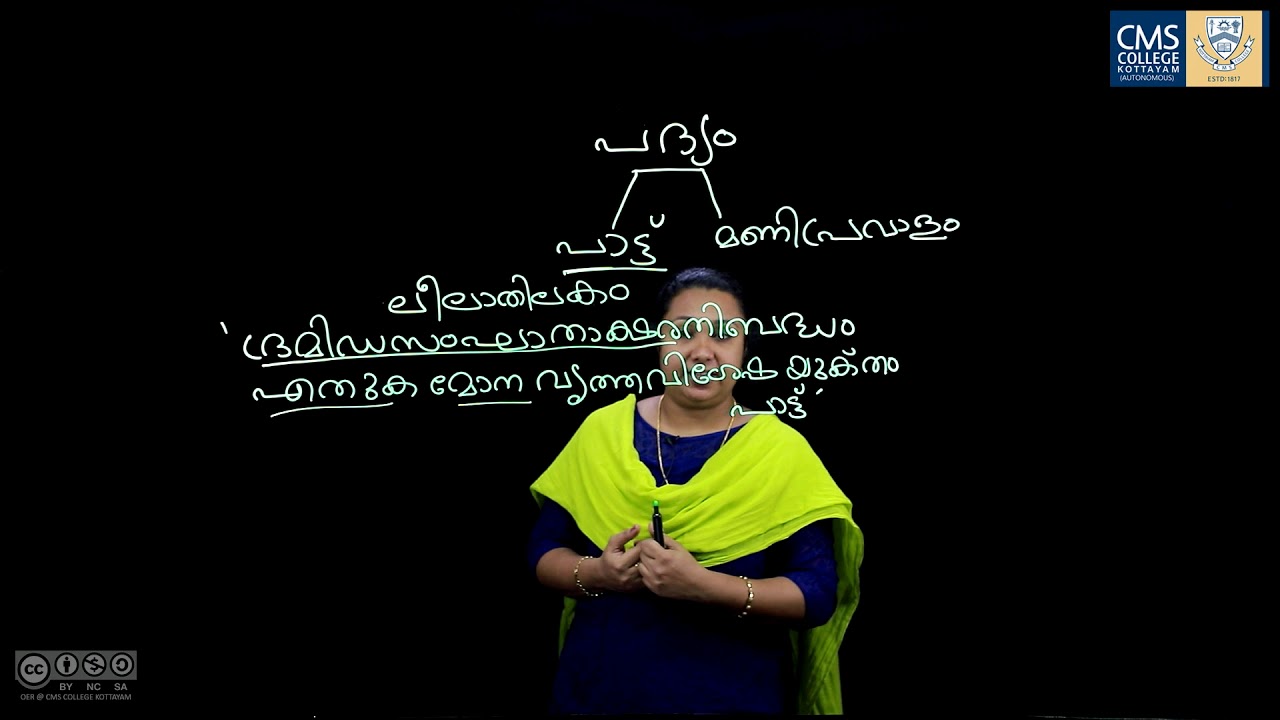 CMS
COLLEGE
KOTTAYAM
(AUTONOMOUS)
ESTD:1817
പദ്യം
പാട്ട് മണിപ്രവാളം
ലീലാതിലകം
'ദ്രമിഡസംഘാതാക്ഷരനിബദ്ധം
എതുക മോന വൃത്തവിശേഷ യുക്തം
പാട്ട്'
cc
BY NC SA
OER @ CMS COLLEGE KOTTAYAM